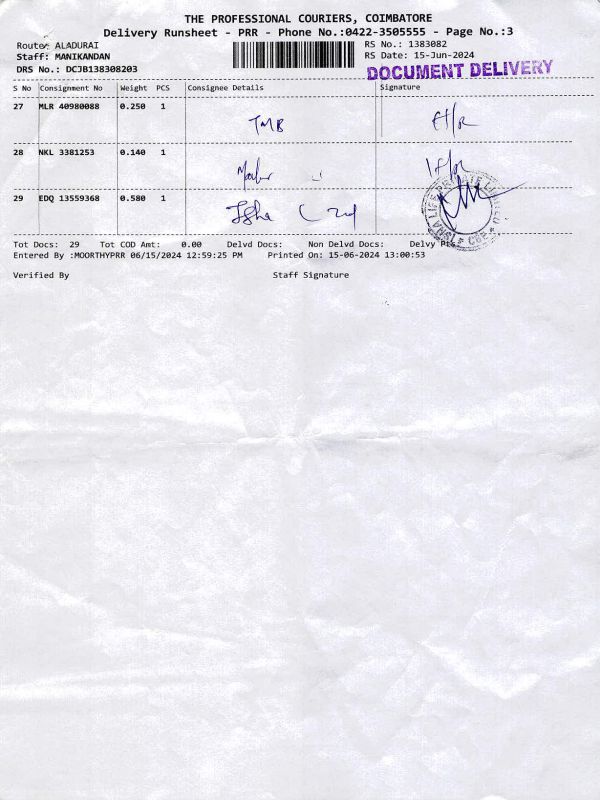 THE PROFESSIONAL COURIERS, COIMBATORE
Delivery Runsheet - PRR - Phone No.:0422-3505555 - Page No.:3
Route: ALADURAI
RS No.: 1383082
Staff: MANIKANDAN
RS Date: 15-Jun-2024
DRS No.: DCJB138308203
DOCUMENT DELIVERY
S No Consignment No Weight PCS Consignee Details Signature
27 MLR 40980088 0.250 1
TMB
28 NKL 3381253 0.140 1
29 EDQ 13559368 0.580 1
Isha
ISHA LIFE PRIVATE LIMITED * CBE *
Tot Docs: 29 Tot COD Amt: 0.00 Delvd Docs: Non Delvd Docs: Delvy
Entered By :MOORTHYPRR 06/15/2024 12:59:25 PM Printed On: 15-06-2024 13:00:53
Verified By Staff Signature